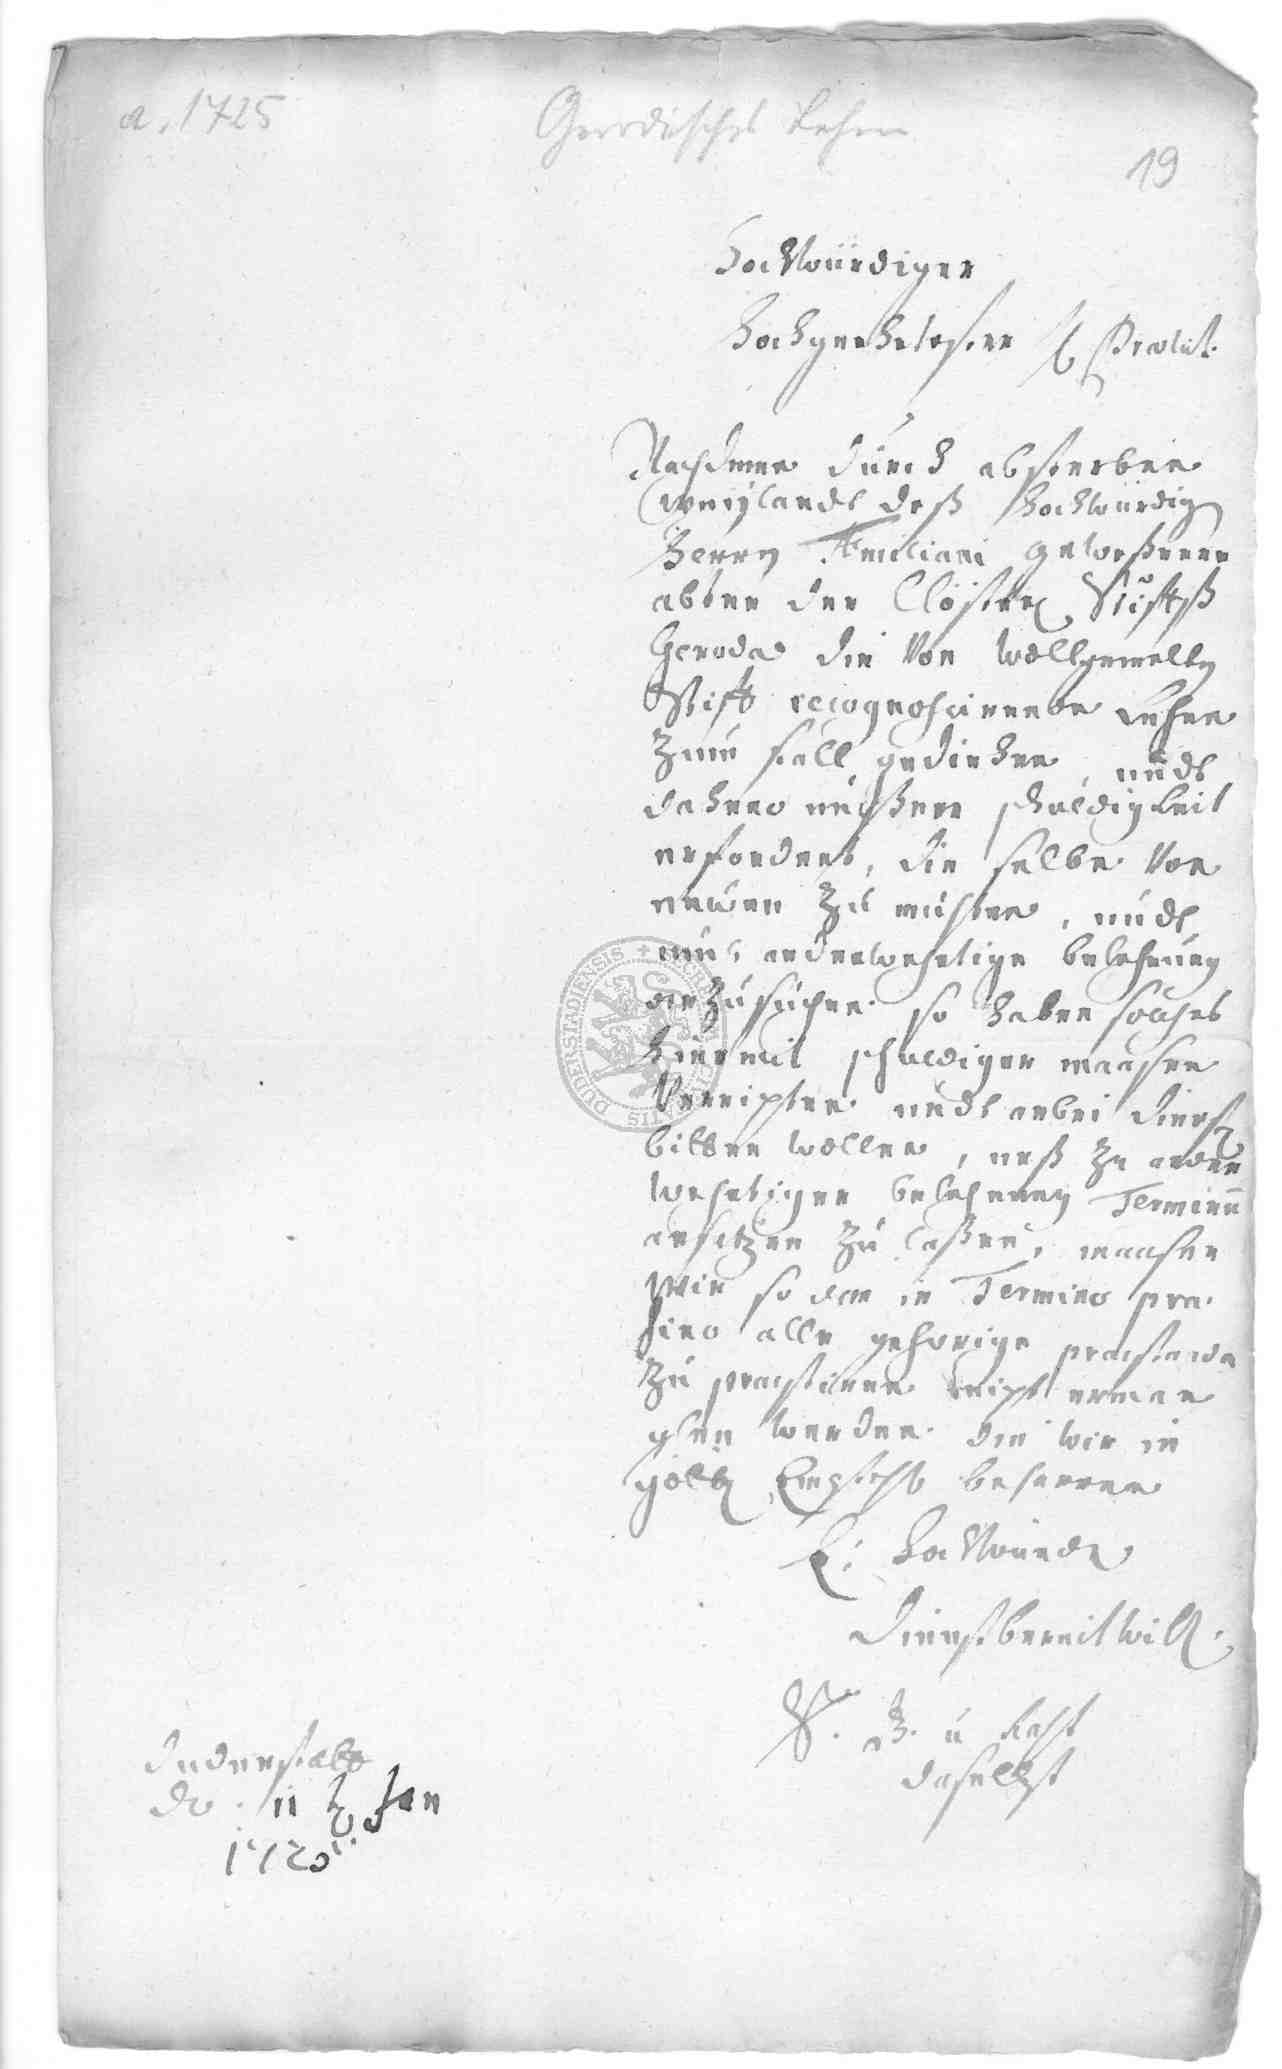 a. 1725
Gerodisches Lehen
19
Hochwürdiger
Hochgeehrtester H Praelat.
Nachdeme durch absterben
weijlandt deß Hochwürdig
Herrn Aemiliani geweßenen
abten der Clöster Stiffts
Geroda die von wollgemelten
Stifft recognoscirende Lehen
zum fall gediehen, undt
dahero unßere schuldigkeit
erfordert, die selbe von
newen zu muhten, undt
umb anderwehrtige belehnung
anzusuchen. so haben solches
hiermit schuldiger maasen
verrichten undt anbei dienstl
bitten wollen, unß zu ander
wehrtiger belehnung Terminum
ansetzen zu laßen, maasen
wir so dan in Termino prae
fixo alle gehorige praestanda
zu praestiren nicht erman
glen werden. die wir in
göttl Empfehl beharren
E: Hochwürden
Dienstbereitwill.
B. u Raht
daselbst
Duderstatt
d. 11 Jan
1725
DUDERSTADIENSIS + SECRETUM CIVITATIS